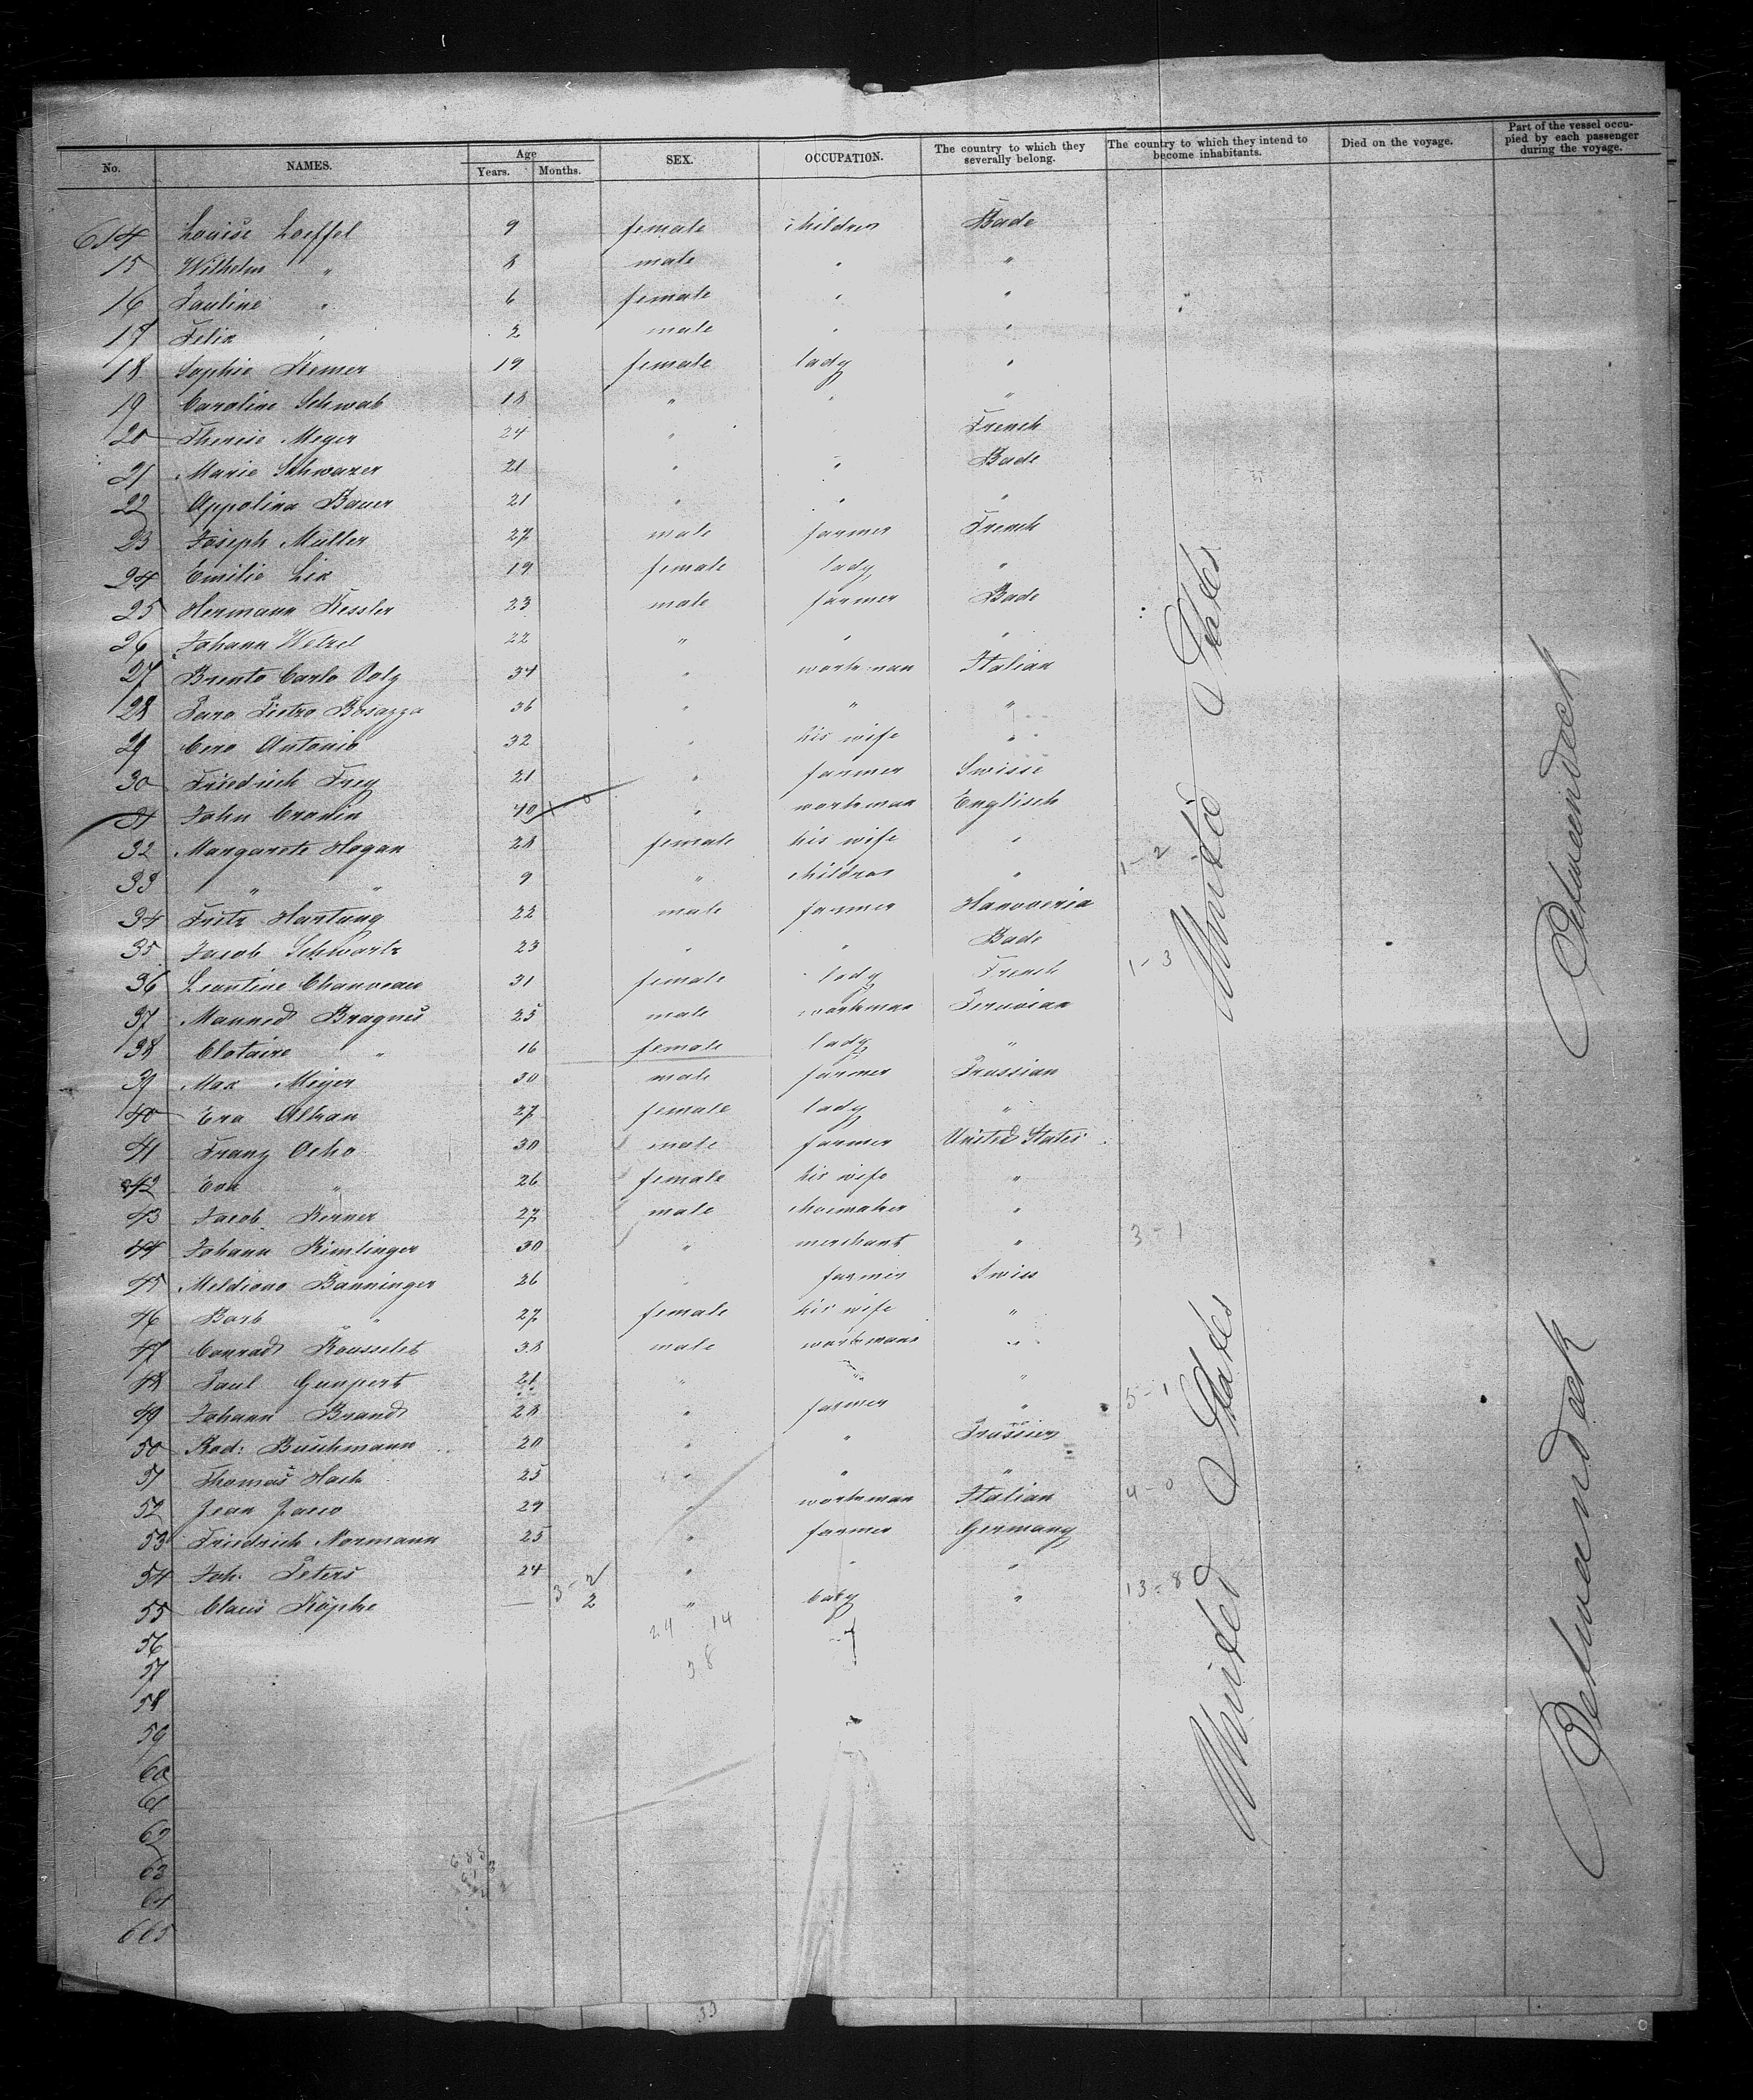 No. NAMES. Age Years. Months. SEX. OCCUPATION. The country to which they severally belong. The country to which they intend to become inhabitants. Died on the voyage. Part of the vessel occupied by each passenger during the voyage.
614 Louise Loeffel 9 female children Bade
15 Wilhelm " 8 male " "
16 Pauline " 6 female " "
17 Felix " 2 male " "
18 Sophie Kemer 19 female lady "
19 Caroline Schwab 18 " " "
20 Therese Meyer 24 " French
21 Marie Schwarer 21 " " Bade
22 Appolina Bauer 21 " " "
23 Joseph Müller 27 male farmer French
24 Emilie Lix 19 female lady "
25 Hermann Kessler 23 male farmer Bade
26 Johann Welzel 22 " " "
27 Brento Carlo Volg 34 " workman Italian
28 Pietro Bosazza 36 " " "
29 Cero Antonio 32 " his wife "
30 Friedrich Frey 21 " farmer Swisse
31 John Cronin 40 " workman Englisch
32 Margarete Hogan 28 female his wife "
33 " " 9 " children " 1-2
34 Fritz Hartung 22 male farmer Hannoveria
35 Jacob Schwartz 23 " " Bade
36 Leontine Chauveau 31 female lady French 1-3
37 Bragnes 25 male workman Peruvian
38 Clotaire " 16 female lady "
39 Max Meyer 30 male farmer Prussian
40 Eva Altran 27 female lady "
41 Franz Ocho 30 male farmer United States
42 Eva " 26 female his wife "
43 Jacob Kerner 27 male shoemaker "
44 Johann Kimlinger 30 " merchant " 3-1
45 Banninger 26 " farmer Swiss
46 Barb " 27 female his wife "
47 Conrad Rousselet 38 male workmans "
48 Paul Gunpert 21 " " "
49 Johann Brandt 28 " farmer " 5-1
50 Rod: Buschmann 20 " " Prussien
51 Thomas Hack 25 " " "
52 Jean 29 " workman Italian 4-0
53 Friedrich Normann 25 " farmer Germany
54 Joh. Peters 24 " " "
55 Claus Köpke — 3-2 2 " baby " 13-8
56 24 14
57 38
58
59
60
61
62
63
64
665
United States
United States
33